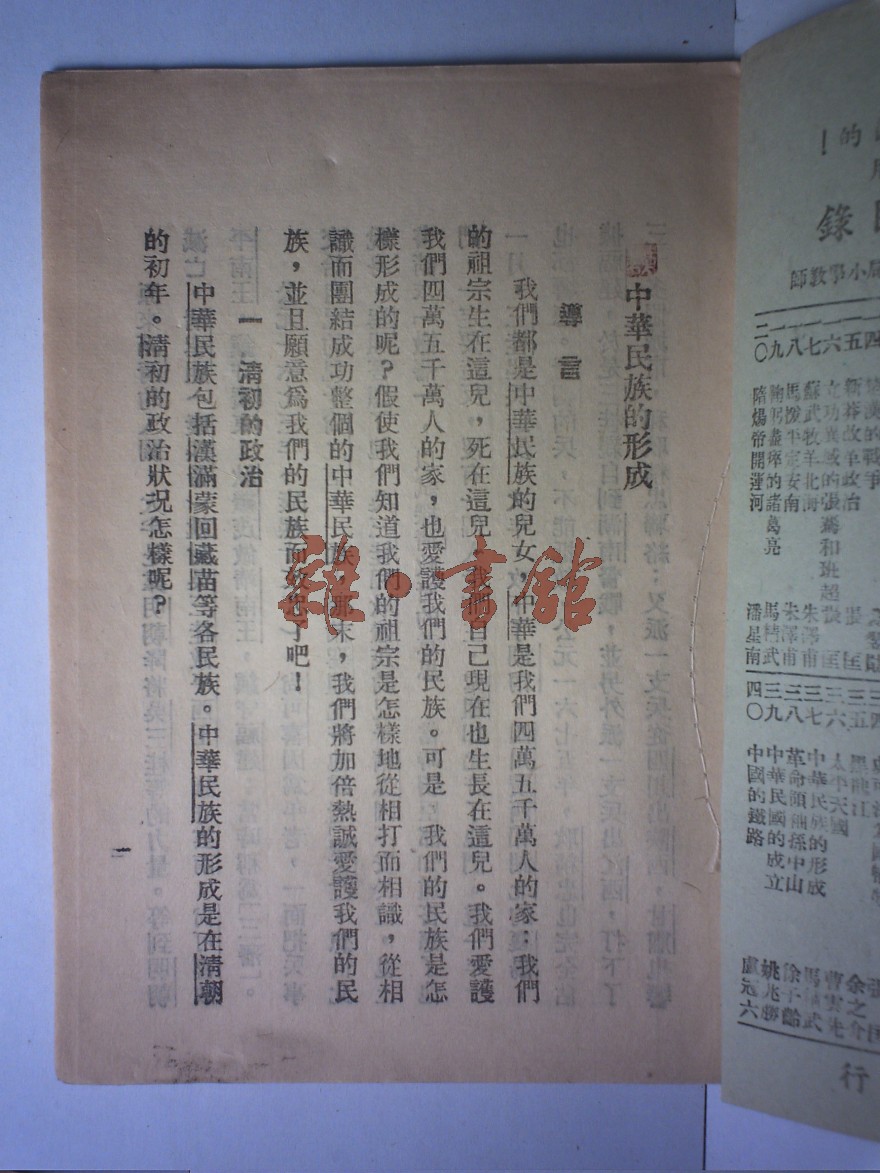 中華民族的形成
導言
我們都是中華民族的兒女，中華是我們四萬五千萬人的家：我們
的祖宗生在這兒，死在這兒，我們自己現在也生長在這兒。我們愛護
我們四萬五千萬人的家，也愛護我們的民族。可是 我們的民族是怎
樣形成的呢？假使我們知道我們的祖宗是怎樣地從相打而相識，從相
識而團結成功整個的中華民族，那末，我們將加倍熱誠愛護我們的民
族，並且願意爲我們的民族而
了吧！
一 清初的政治
中華民族包括漢滿蒙回藏苗等各民族。中華民族的形成是在清朝
的初年。清初的政治狀況怎樣呢？
一
雜·書館
的！
錄
小學教師
四
五 新莽改革政治
六 立功異域的張騫和班超 張匡
一七 蘇武牧羊北海 朱澤甫
一八 馬援平定安南 朱澤甫
一九 鞠躬盡瘁的諸葛亮 馬精武
二〇 隋煬帝開運河 潘星南
三四
三五
三六 太平天國
三七 中華民族的形成
三八 革命領袖孫中山 徐子
三九 中華民國的成立 姚兆勝
四〇 中國的鐵路 盧冠六
行